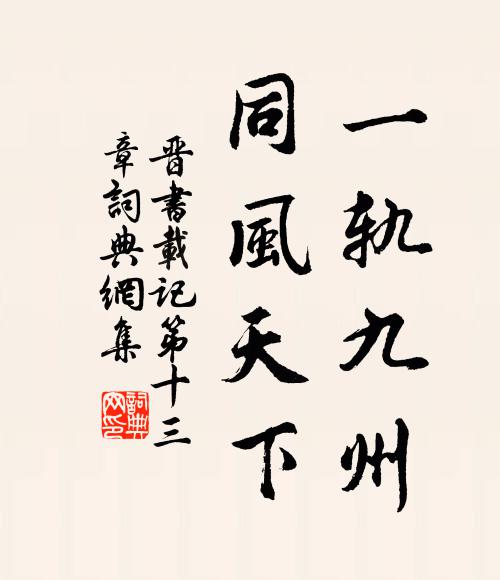 一軌九州
同風天下
晋書載記第十三
章詞典網集
詞典
网印